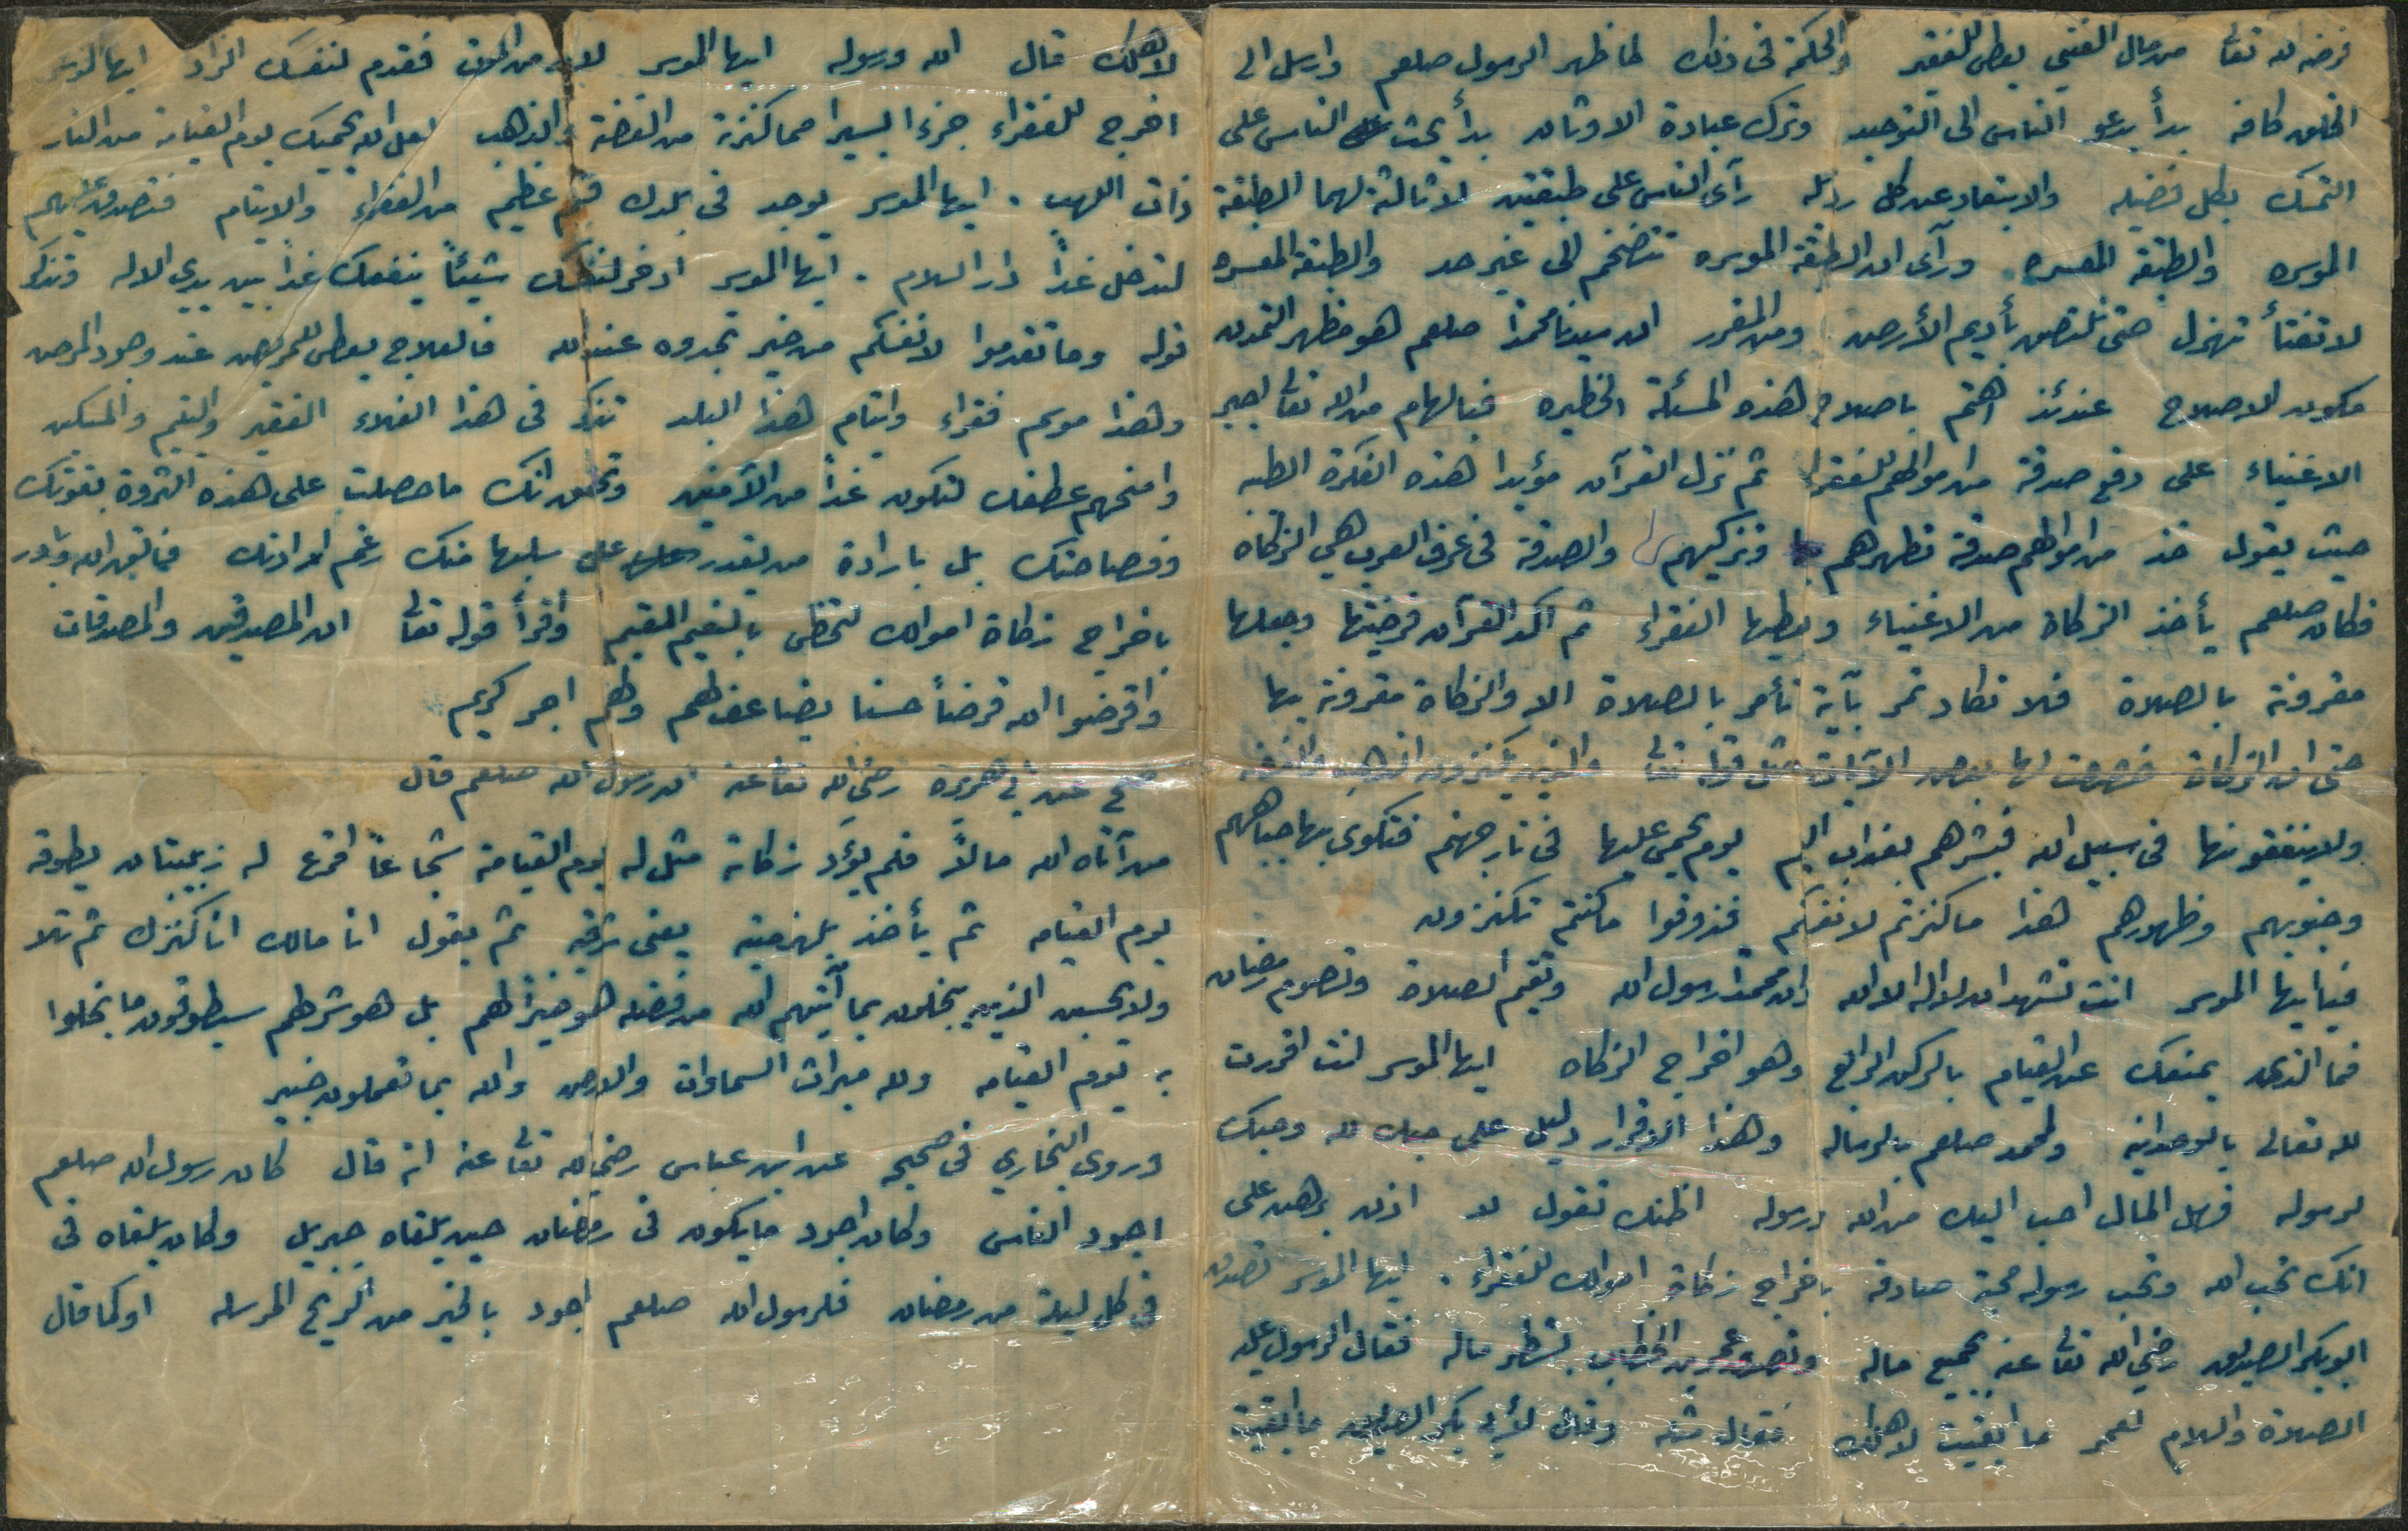 فرضه الله تعالى من مال الغني يعطى للفقير والحكمة في ذلك لما ظهر الرسول صلعم وارسل الى
الخلق كافه بدأ يدعو الناس الى التوحيد وترك عبادة الاوثان بدأ يحث الناس على
التمسك بكل فضيله والابتعاد عن كل رذيله رآى الناس على طبقتين لا ثالثة لهما الطبقة
الموسره والطبقه المعسره ورآى ان الطبقة الموسره تتضخم الى غير حد والطبقة المعسره
لا تفتأ تهزل حتى تلتصق بأديم الأرض ومن المقرر ان سيدنا محمداً صلعم هو مظهر التمدن
مكون الاصلاح عندئذ اهتم باصلاح هذه المسئلة الخطيره فبالهام من الله تعالى اجبر
الاغنياء على دفع صدقة من اموالهم للفقراء ثم نزل القرآن مؤيدا هذه الفكرة الطبه
حيث يقول خذ من اموالهم صدقة تطهرهم وتزكيهم بها والصدقة في عرف العرب هي الزكاه
فكان صلعم يأخذ الزكاة من الاغنياء ويعطيها الفقراء ثم اكد القرآن فرضيتها وجعلها
مقرونة بالصلاة فلا تكاد تمر بآية تأمر بالصلاة الا والزكاة مقرونة بها
حتى ان الزكاة خصصت لها بعض الآيات مثل قوله تعالى والذين يكنزون الذهب والفضه
ولا ينفقونها في سبيل الله فبشرهم بعذاب اليم يوم يحمى عليها في نار جهنم فتكوى بها جباههم
وجنوبهم وظهورهم هذا ما كنزتم لانفسكم فذوقوا ما كنتم تكنزون
فيا ايها الموسر انت تشهد ان لا اله الا الله وان محمداً رسول الله وتقيم الصلاة وتصوم رمضان
فما الذي يمنعك عن القيام بالركن الرابع وهو اخراج الزكاه ايها الموسر انت اقررت
لله تعالى بالوحدانيه ولمحمد صلعم بالرساله وهذا الاقرار دليل على حبك لله وحبك
لرسوله فهل المال احب اليك من الله ورسوله اظنك تقول لا اذن برهن على
انك تحب الله وتحب رسوله محبة صادقه باخراج زكاة اموالك للفقراء . ايها الموسر تصدق
ابو بكر الصديق رضي الله تعالى عنه بجميع ماله وتصدق عمر بن الخطاب بشطر ماله فقال الرسول عليه
الصلاة والسلام لعمر ما ابقيت لاهلك فقال مثله وقال لأبي بكر الصديق ما ابقيت
لاهلك قال الله ورسوله ايها الموسر لا بد من الموت فقدم لنفسك الزاد ايها الموسر
اخرج للفقراء جزءا يسيرا مما كنزته من الفضة والذهب لعل الله يحميك يوم القيامة من النار
ذات اللهب . ايها الموسر يوجد في بلدك قسم عظيم من الفقراء والايتام فتصدق عليهم
لتدخل غداً دار السلام . ايها الموسر ادخر لنفسك شيئاً ينفعك غداً بين يدي الاله وتذكر
قوله وما تقدموا لانفسكم من خير تجدوه عند الله فالعلاج يعطى للمريض عند وجود المرض
وهذا موسم فقراء وايتام هذا البلد تذكر في هذا الغلاء الفقير واليتيم والمسكين
وامنحهم عطفك لتكون غداً من الآمنين وتحقق انك ما حصلت على هذه الثروة بقوتك
وفصاحتك بل بارادة من يقدر على سلبها منك رغم ارادتك فاتق الله وبادر
باخراج زكاة اموالك لتحظى بالنعيم المقيم واقرأ قوله تعالى ان المصدقين والمصدقات
واقرضوا الله قرضاً حسنا يضاعف لهم ولهم اجر كريم
صح عن ابي هريرة رضي الله تعالى عنه ان رسول الله صلعم قال
من آتاه الله مالاً فلم يؤد زكاته مثل له يوم القيامة شجاعاً اقرع له زبيبتان يطوقه
يوم القيامه ثم يأخذ بلهزمتيه يعني شدقيه ثم يقول انا مالك انا كنزك ثم تلا
ولا تحسبن الذين يبخلون بما آتيهم الله من فضله هو خيراً لهم بل هو شر لهم سيطوقون ما بخلوا
به يوم القيامه ولله ميراث السماوات والارض والله بما تعملون خبير
وروى البخاري في صحيحه عن ابن عباس رضي الله تعالى عنه انه قال كان رسول الله صلعم
اجود الناس وكان اجود ما يكون في رمضان حين يلقاه جبريل وكان يلقاه في
في كل ليلة من رمضان فلرسول الله صلعم اجود بالخير من الريح المرسله او كما قال